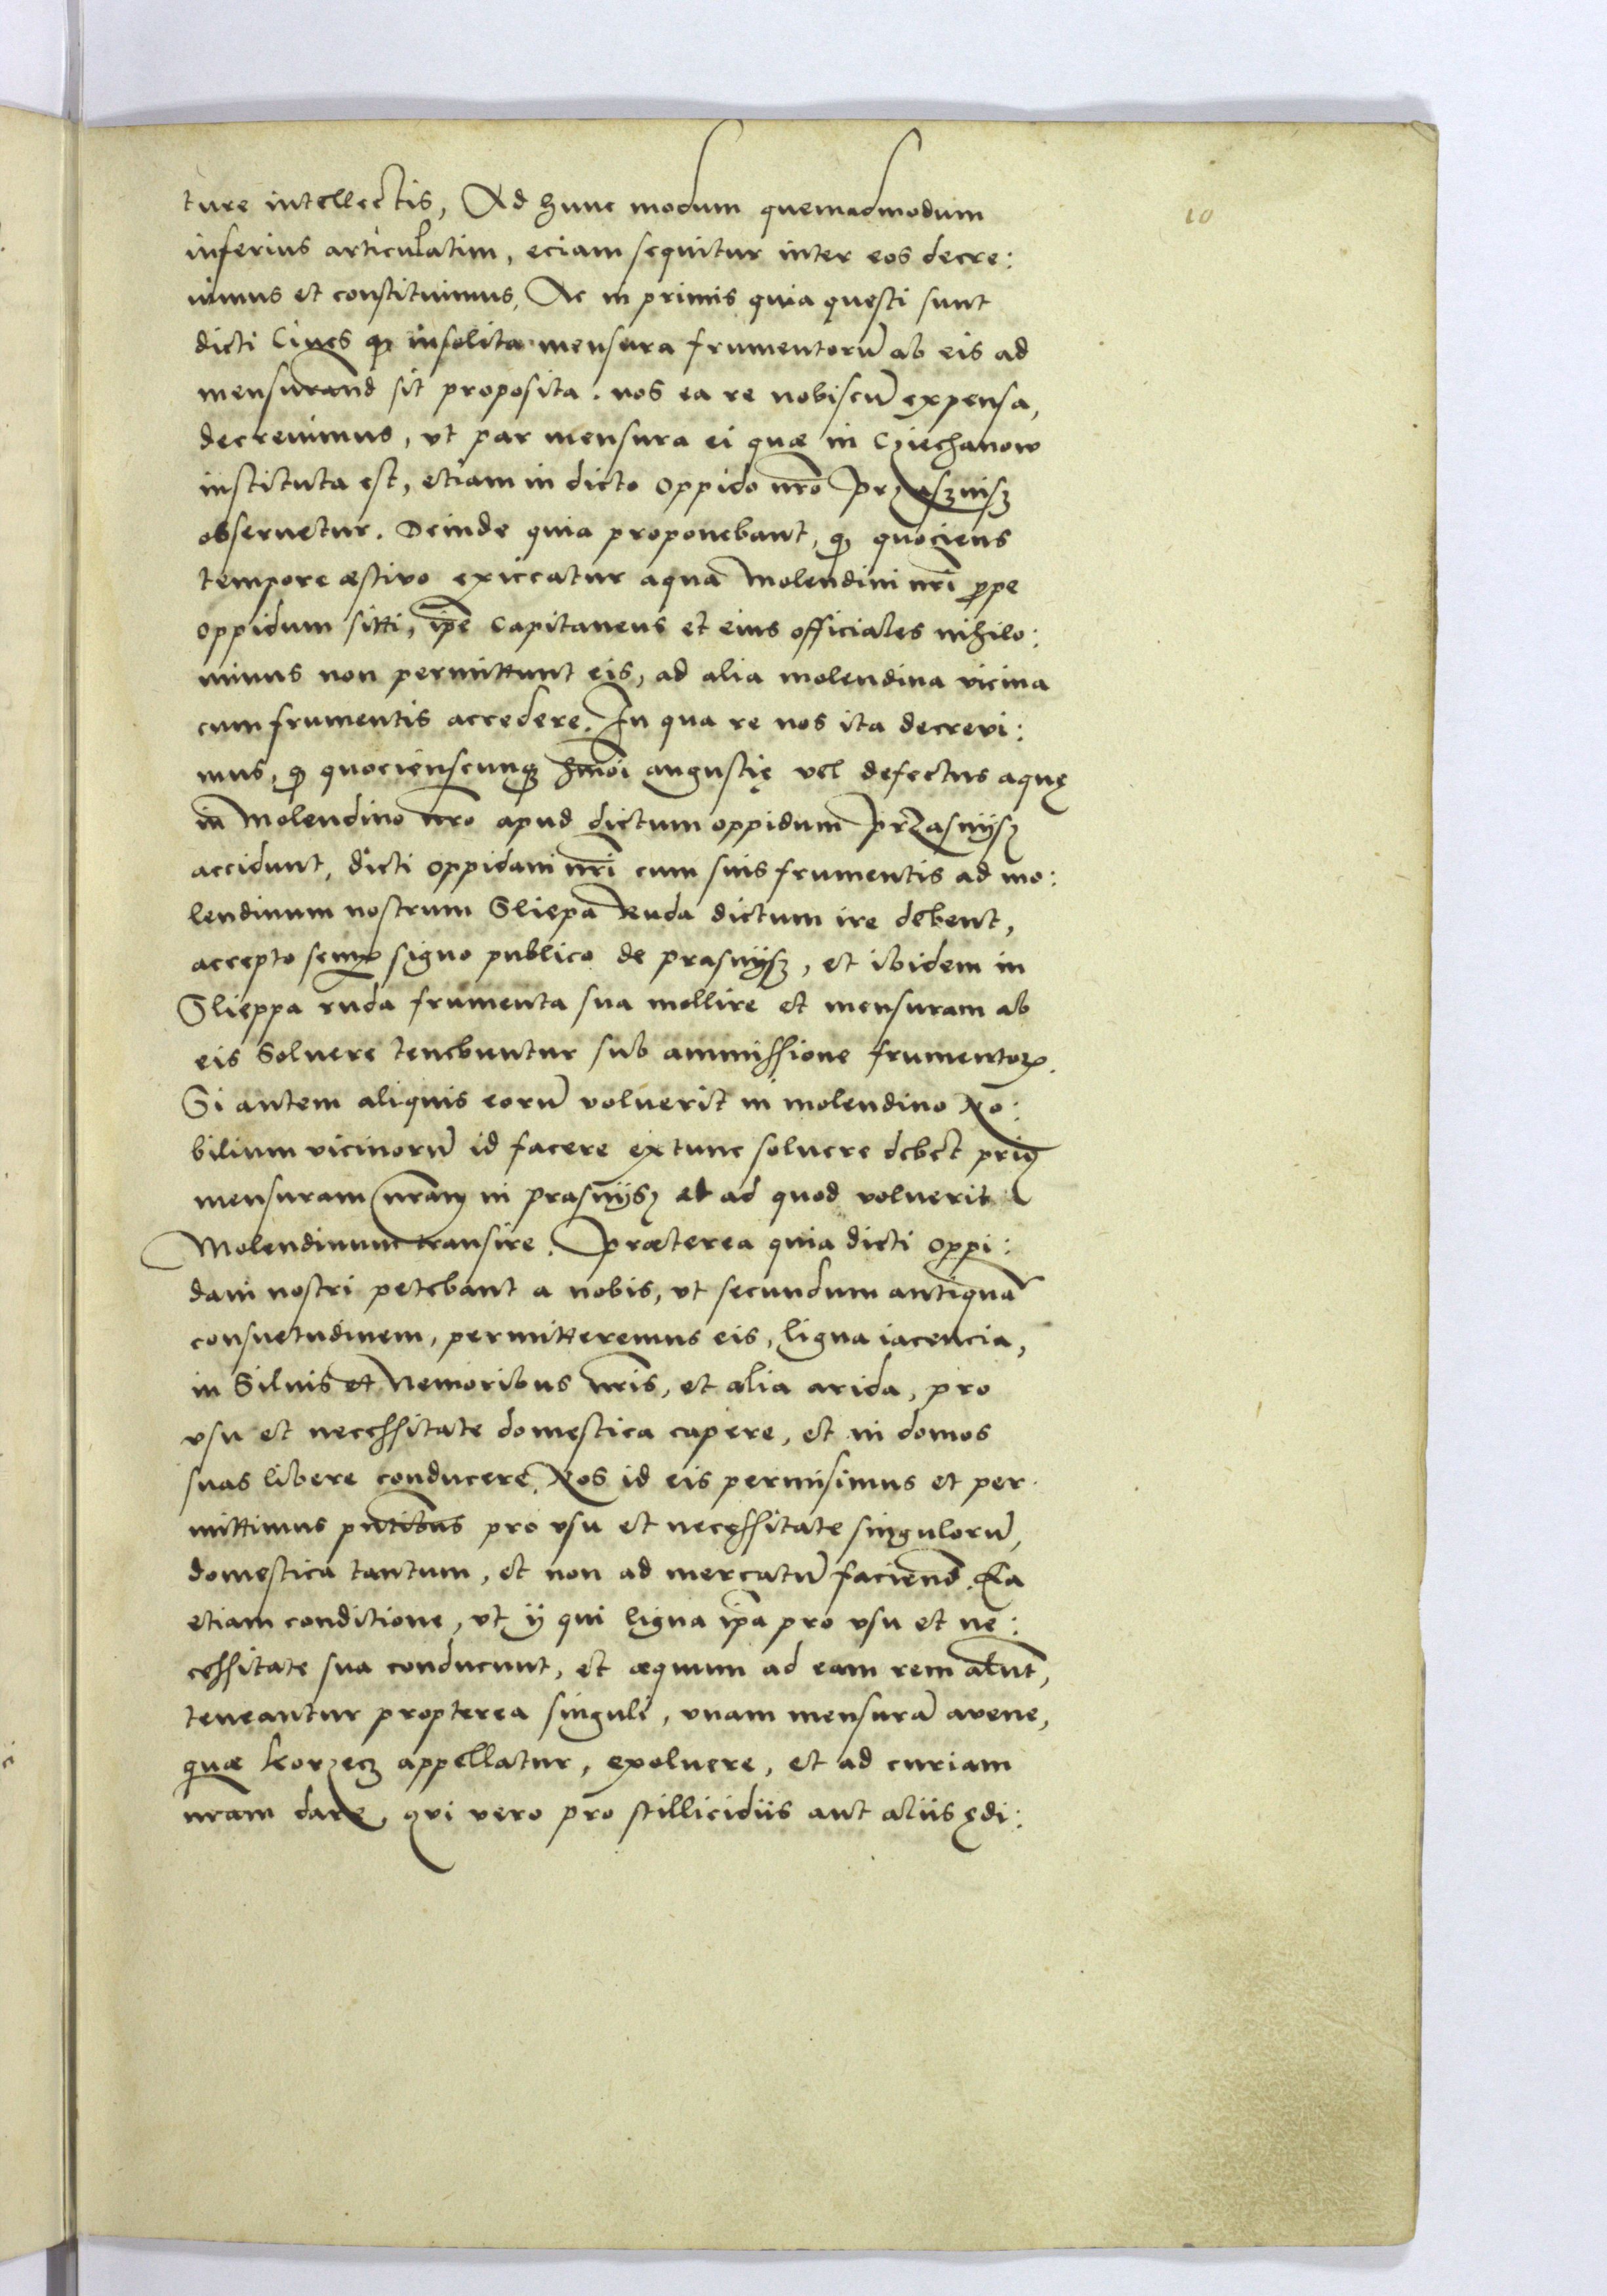 10
ture intellectis, Ad hunc modum quemadmodum
inferius articulatim, eciam sequitur inter eos decre:
uimus et constituimus, Ac in primis quia questi sunt
dicti Ciues qꝫ insolita mensura frumentorū ab eis ad
mensurand sit proposita. nos ea re nobiscū expensa,
decreuimus, vt par mensura ei quæ in Cziechanow
instituta est, etiam in dicto oppido nr̄o Przasznisz
obseruetur. Deinde quia proponebant, qꝫ quociens
tempore æstivo exiccatur aqua Molendini nr̄i ꝓpe
oppidum sitti, ip̄e Capitaneus et eius officiales nihilo:
minus non permittunt eis, ad alia molendina vicina
cum frumentis accedere. In qua re nos ita decrevi:
mus, qꝫ quocienscunqꝫ hm̄oi angustię vel defectus aquę
in Molendino nr̄o apud dictum oppidum Przasnijsz
accidunt, dicti oppidani nr̄i cum suis frumentis ad mo:
lendinum nostrum Sliepa Ruda dictum ire debent,
accepto semꝑ signo publico de prasnijsz, et ibidem in
Slieppa ruda frumenta sua mollire et mensuram ab
eis Soluere tenebuntur sub ammissione frumentoꝝ.
Si autem aliquis eorū voluerit in molendino No:
bilium vicinorū id facere extunc soluere debet priꝰ
mensuram nr̄am in prasnijsz et ad quod voluerit
Molendinum transire. Præterea quia dicti oppi:
dani nostri petebant a nobis, vt secundum antiquā
consuetudinem, permitteremus eis, ligna iacencia,
in Siluis et Nemoribus nr̄is, et alia arida, pro
vsu et necessitate domestica capere, et in domos
suas libere conducere. Nos id eis permisimus et per
mittimus pn̄tibus pro vsu et necessitate singulorū,
domestica tantum, et non ad mercatū faciend. Ea
etiam conditione, vt ij qui ligna ip̄a pro vsu et ne:
cessitate sua conducunt, et æquum ad eam rem alunt,
teneantur propterea singuli, vnam mensurā avene,
quæ korzecz appellatur, exoluere, et ad curiam
nr̄am dare, qui vero pro stillicidiis aut aliis ędi: